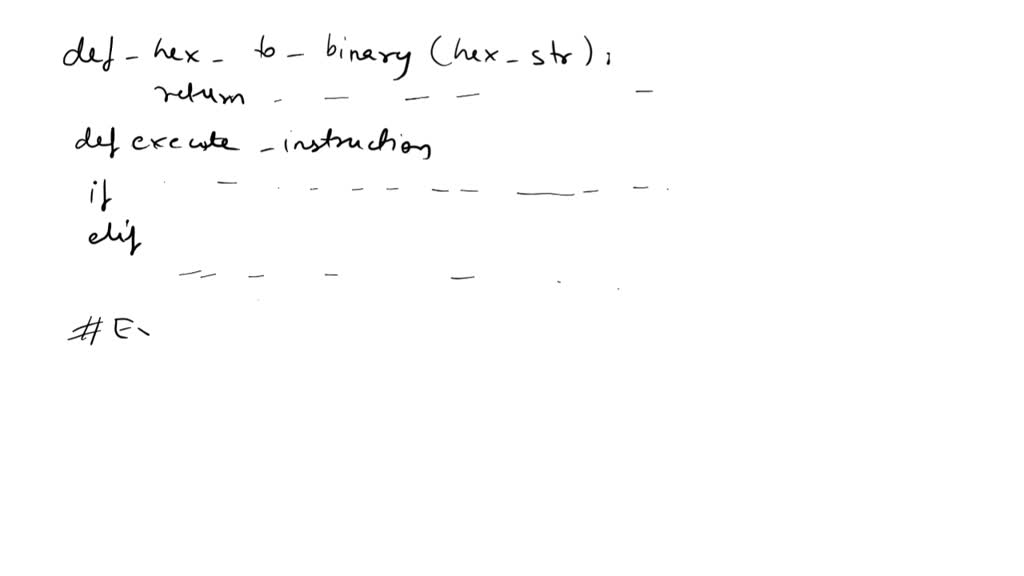 def - hex - to - binary (hex - str) :
return - - - - -
def execute - instruction
if - - - - - - - - -
elif
- - - - -
# E